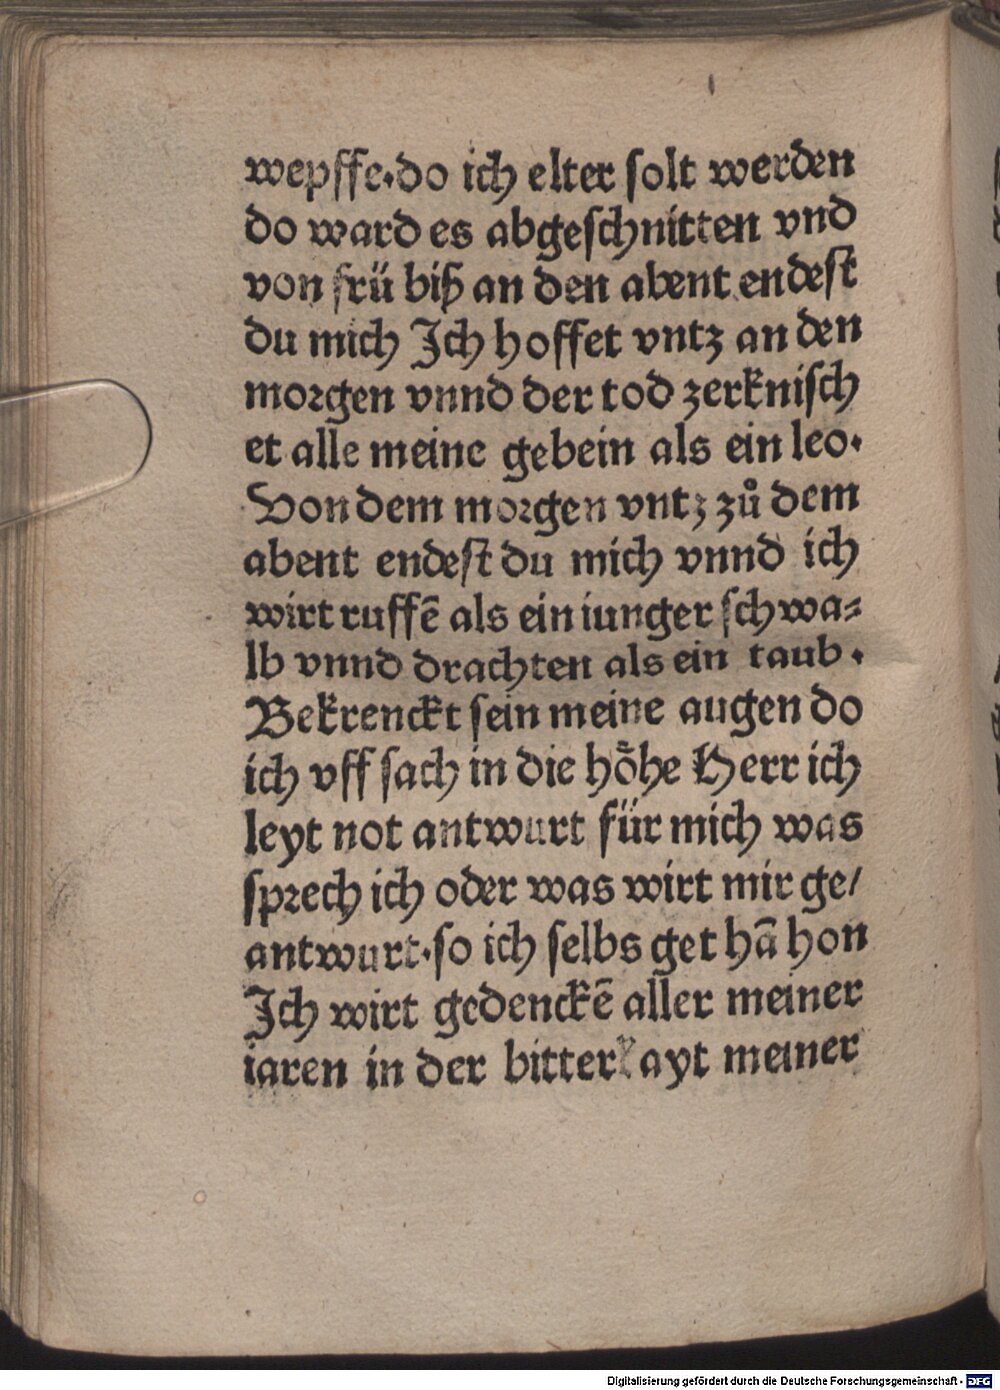 wepffe·do ich elter solt werden
do ward es abgeschnitten vnd
von frü biß an den abent endest
du mich Ich hoffet vntz an den
morgen vnnd der tod zerknisch
et alle meine gebein als ein leo·
Von dem morgen vntz zů dem
abent endest du mich vnnd ich
wirt ruffē als ein iunger schwa⸗
lb vnnd drachten als ein taub·
Bekrenckt sein meine augen do
ich vff sach in die hoͤhe Herr ich
leyt not antwurt für mich was
sprech ich oder was wirt mir ge/
antwurt·so ich selbs get hā hon
Ich wirt gedenckē aller meiner
iaren in der bitterkayt meiner
Digitalisierung gefördert durch die Deutsche Forschungsgemeinschaft - DFG